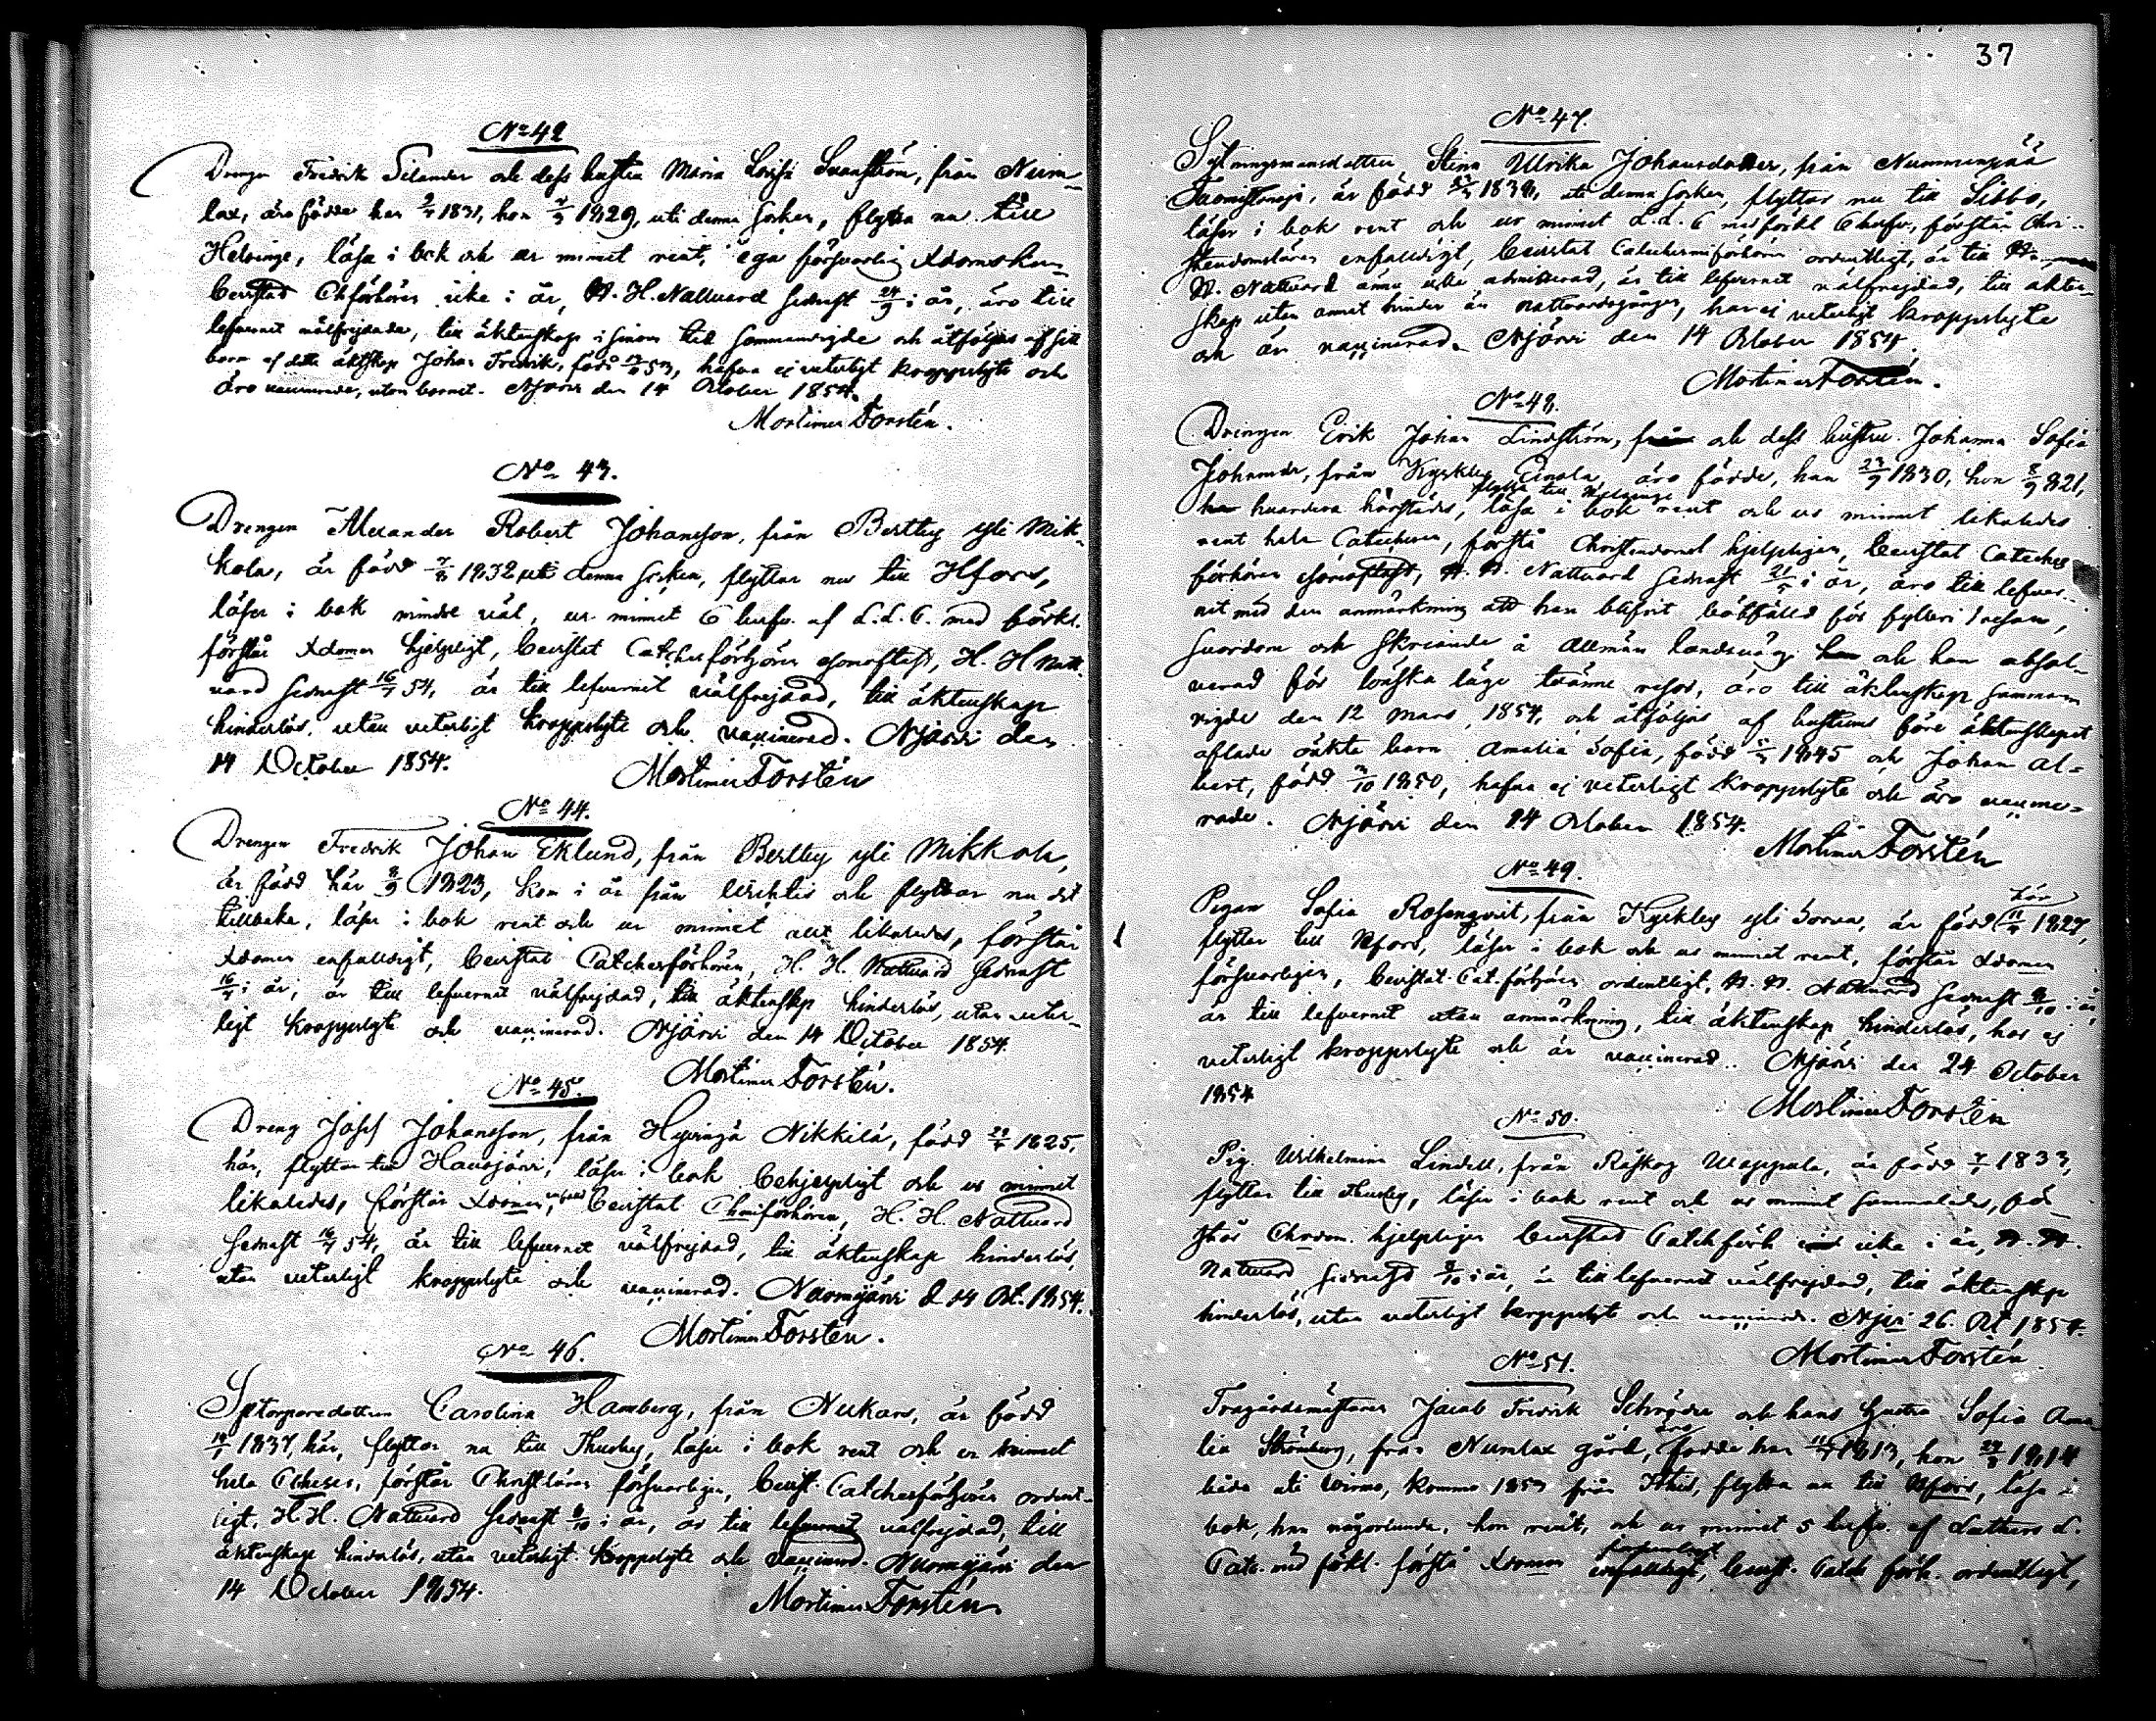 37
No 42
Drengen Fredrik Silander och dess hustru Maria Lovisa Svanström, från Num-
lax, äro födde han 1831, hon 1829, uti denna socken, flytta nu till
Helsinge, läsa i bok och ur minnet rent, ega försvarlig Xdomskun-
bevistad förhören icke i år, H. H. Nattvard senast 24/9 i år, äro till
lefvernet välfrejdade, till äktenskap sinom till sammanvigde och åtföljas af sitt
barn af detta äktskap Johan Fredrik, född 53, hafva ej veterligt kroppslyte och
äro vaccinerade, utom barnet. Njärvi den 14 October 1854.
Mortimer Forstén.
No 43.
Drengen Alexander Robert Johansson, från Bertby yli Mik-
kola, är född 1832 uti denna socken, flyttar nu till Hfors,
läser i bok mindre väl, ur minnet 6 hufv. af L. L. C. med förkl.
förstår Xdomen hjelpligt, bevistat Catchesförhören esomoftast, H. H Natt-
vard senast 16/7 54, är till lefvernet välfrejdad, till äktenskap
hinderlös, utan veterligt kroppslyte och vaccinerad. Njärvi den
14 October 1854.
Mortimer Forstén
No 44.
Drengen Fredrik Johan Eklund, från Bertby yli Mikkola,
är född här 8/9 1823, kom i år från Wichtis och flyttar nu dit
tillbaka, läser i bok rent och ur minnet allt likaledes, förstår
Xdomen enfaldigt, bevistat Catchesförhören, H. H. Nattvard senast
16/7 i år, är till lefvernet välfrejdad, till äktenskap hinderlös, utan veter-
ligt kroppslyte och vaccinerad. Njärvi den 14 October 1854.
Mortimer Forstén.
No 45.
Dreng Josef Johansson, från Hyvingä Nikkilä, född 1825,
här, flyttar till Hausjärvi, läser i bok behjelpligt och ur minnet
likaledes, förstår Xdomen, bevistat förhören, H. H. Nattvard
senast 16/7 54, är till lefvernet välfrejdad, till äktenskap hinderlös,
utan veterligt kroppslyte och vaccinerad. Nurmijärvi d 14 Oct. 1854.
Mortimer Forstén.
No 46.
Sytorparedottren Carolina Hamberg, från Nukars, är född
1837, här, flyttar nu till Thusby, läser i bok rent och ur minnet
hela Catches, förstår Christläran försvarligen, bevist. Catchesförhören ordent-
ligt, H. H. Nattvard senast 8/10 i år, är till lefvernet välfrejdad, till
äktenskap hinderlös, utan veterligt kroppslyte och vaccinerad. Nurmijärvi den
14 October 1854.
Mortimer Forstén.
No 47.
Sytningsmansdottren Stina Ulrika Johansdotter, från Nummenpää
är född 1838, uti denna socken, flyttar nu till Sibbo,
läser i bok rent och ur minnet L. L. C med förkl 6 hufv, förstår Chri-
stendomsläran enfaldigt, bevistat Catechesmiförhören ordentligt, är till
H. Nattvard ännu icke admitterad, är till lefvernet välfrejdad, till äkten-
skap utan annat hinder än nattvardsgången, har ej veterligt kroppslyte
och är vaccinerad. Njärvi den 14 October 1854.
Mortimer Forstén.
No 48.
Drengen Erik Johan Lindström, och dess hustru Johanna Sofia
Johansdr, från Kyrkby Einola, äro födde, han 23/9 1830, hon 8/9 821,
flytta till Helsinge
hvardera härstädes, läsa i bok rent och ur minnet likaledes
rent hela Catechesen, förstå Christendomet hjelpligen, bevistat Cateches
förhören esomoftast, H. H. Nattvard senast i år, äro till lefver-
net med den anmärkning att han blifvit bötfälld för fylleri 1 resan,
svordom och skriande å allmän landsväg och hon absol-
verad för lönska läge tvänne resor, äro till äktenskap samman
vigde den 12 Mars 1854, och åtföljas af hustruns före äktenskapet
aflade oäkta barn Amalia Sofia, född 1845 och Johan Al-
bert, född 1850, hafva ej veterligt kroppslyte och äro vaccine-
rade. Njärvi den 14 October 1854.
Mortimer Forstén
No 49.
Pigan Sofia Rosenqvist, från Kyrkby yli Sorva, är född här 11/9 1827,
flyttar till Hfors, läser i bok och ur minnet rent, förstår Xdomen
försvarligen, bevistat Cat. förhören ordentligt, H. H. Nattvard senast 8/10 i år,
är till lefvernet utan anmärkning, till äktenskap hinderlös, har ej
veterligt kroppslyte och är vaccinerad. Njärvi den 24 October
1854
Mortimer Forstén
No 50.
Pig. Wilhelmina Lindell, från Röskog Uotila, är född 1833,
flyttar till Thusby, läser i bok rent och ur minnet sammaledes, för-
står Chrdom. hjelpligen bevistad Catchförh icke i år, H. H.
Nattvard senast 8/10 i år, är till lefvernet välfrejdad, till äktenskap
hinderlös, utan veterligt kroppslyte och vaccinerad. Njrvi 26. Oct 1854.
Mortimer Forstén.
No 51.
Trägårdsmästaren Jacob Fredrik Schröder och hans hustru Sofia Ama-
lia Strömberg, från Numlax gård, äro födde han 1813, hon 1814
båda uti Wirmo, kommo 1853 från, flytta nu till Hfors, läsa i
bok, han någorlunda, hon rent, och ur minnet 5 hufv. af Luthers L.
Catc. med förkl. förstå Xdomen försvarligt, bevist. Catch förh. ordentligt,